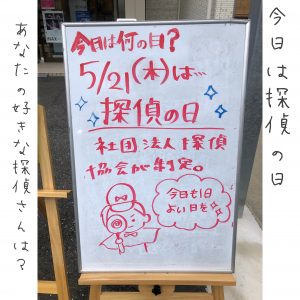 今日は探偵の日
今日は何の日?
5/21(木)は…
探偵の日
社団法人探偵
協会が制定。
今日も1日
よい日を
あなたの好きな探偵さんは?